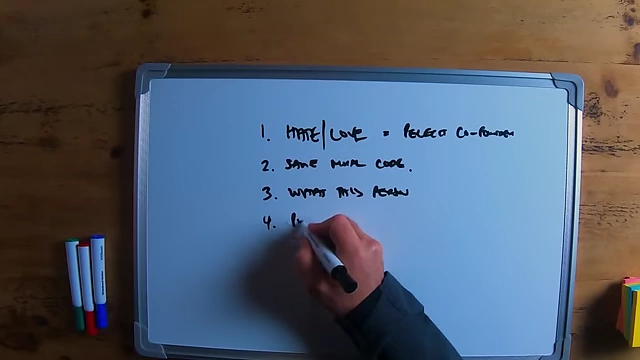 1. HATE/LOVE = PERFECT CO-FOUNDER
2. SAME MORAL CODE.
3. WHAT THIS PERSON
4.